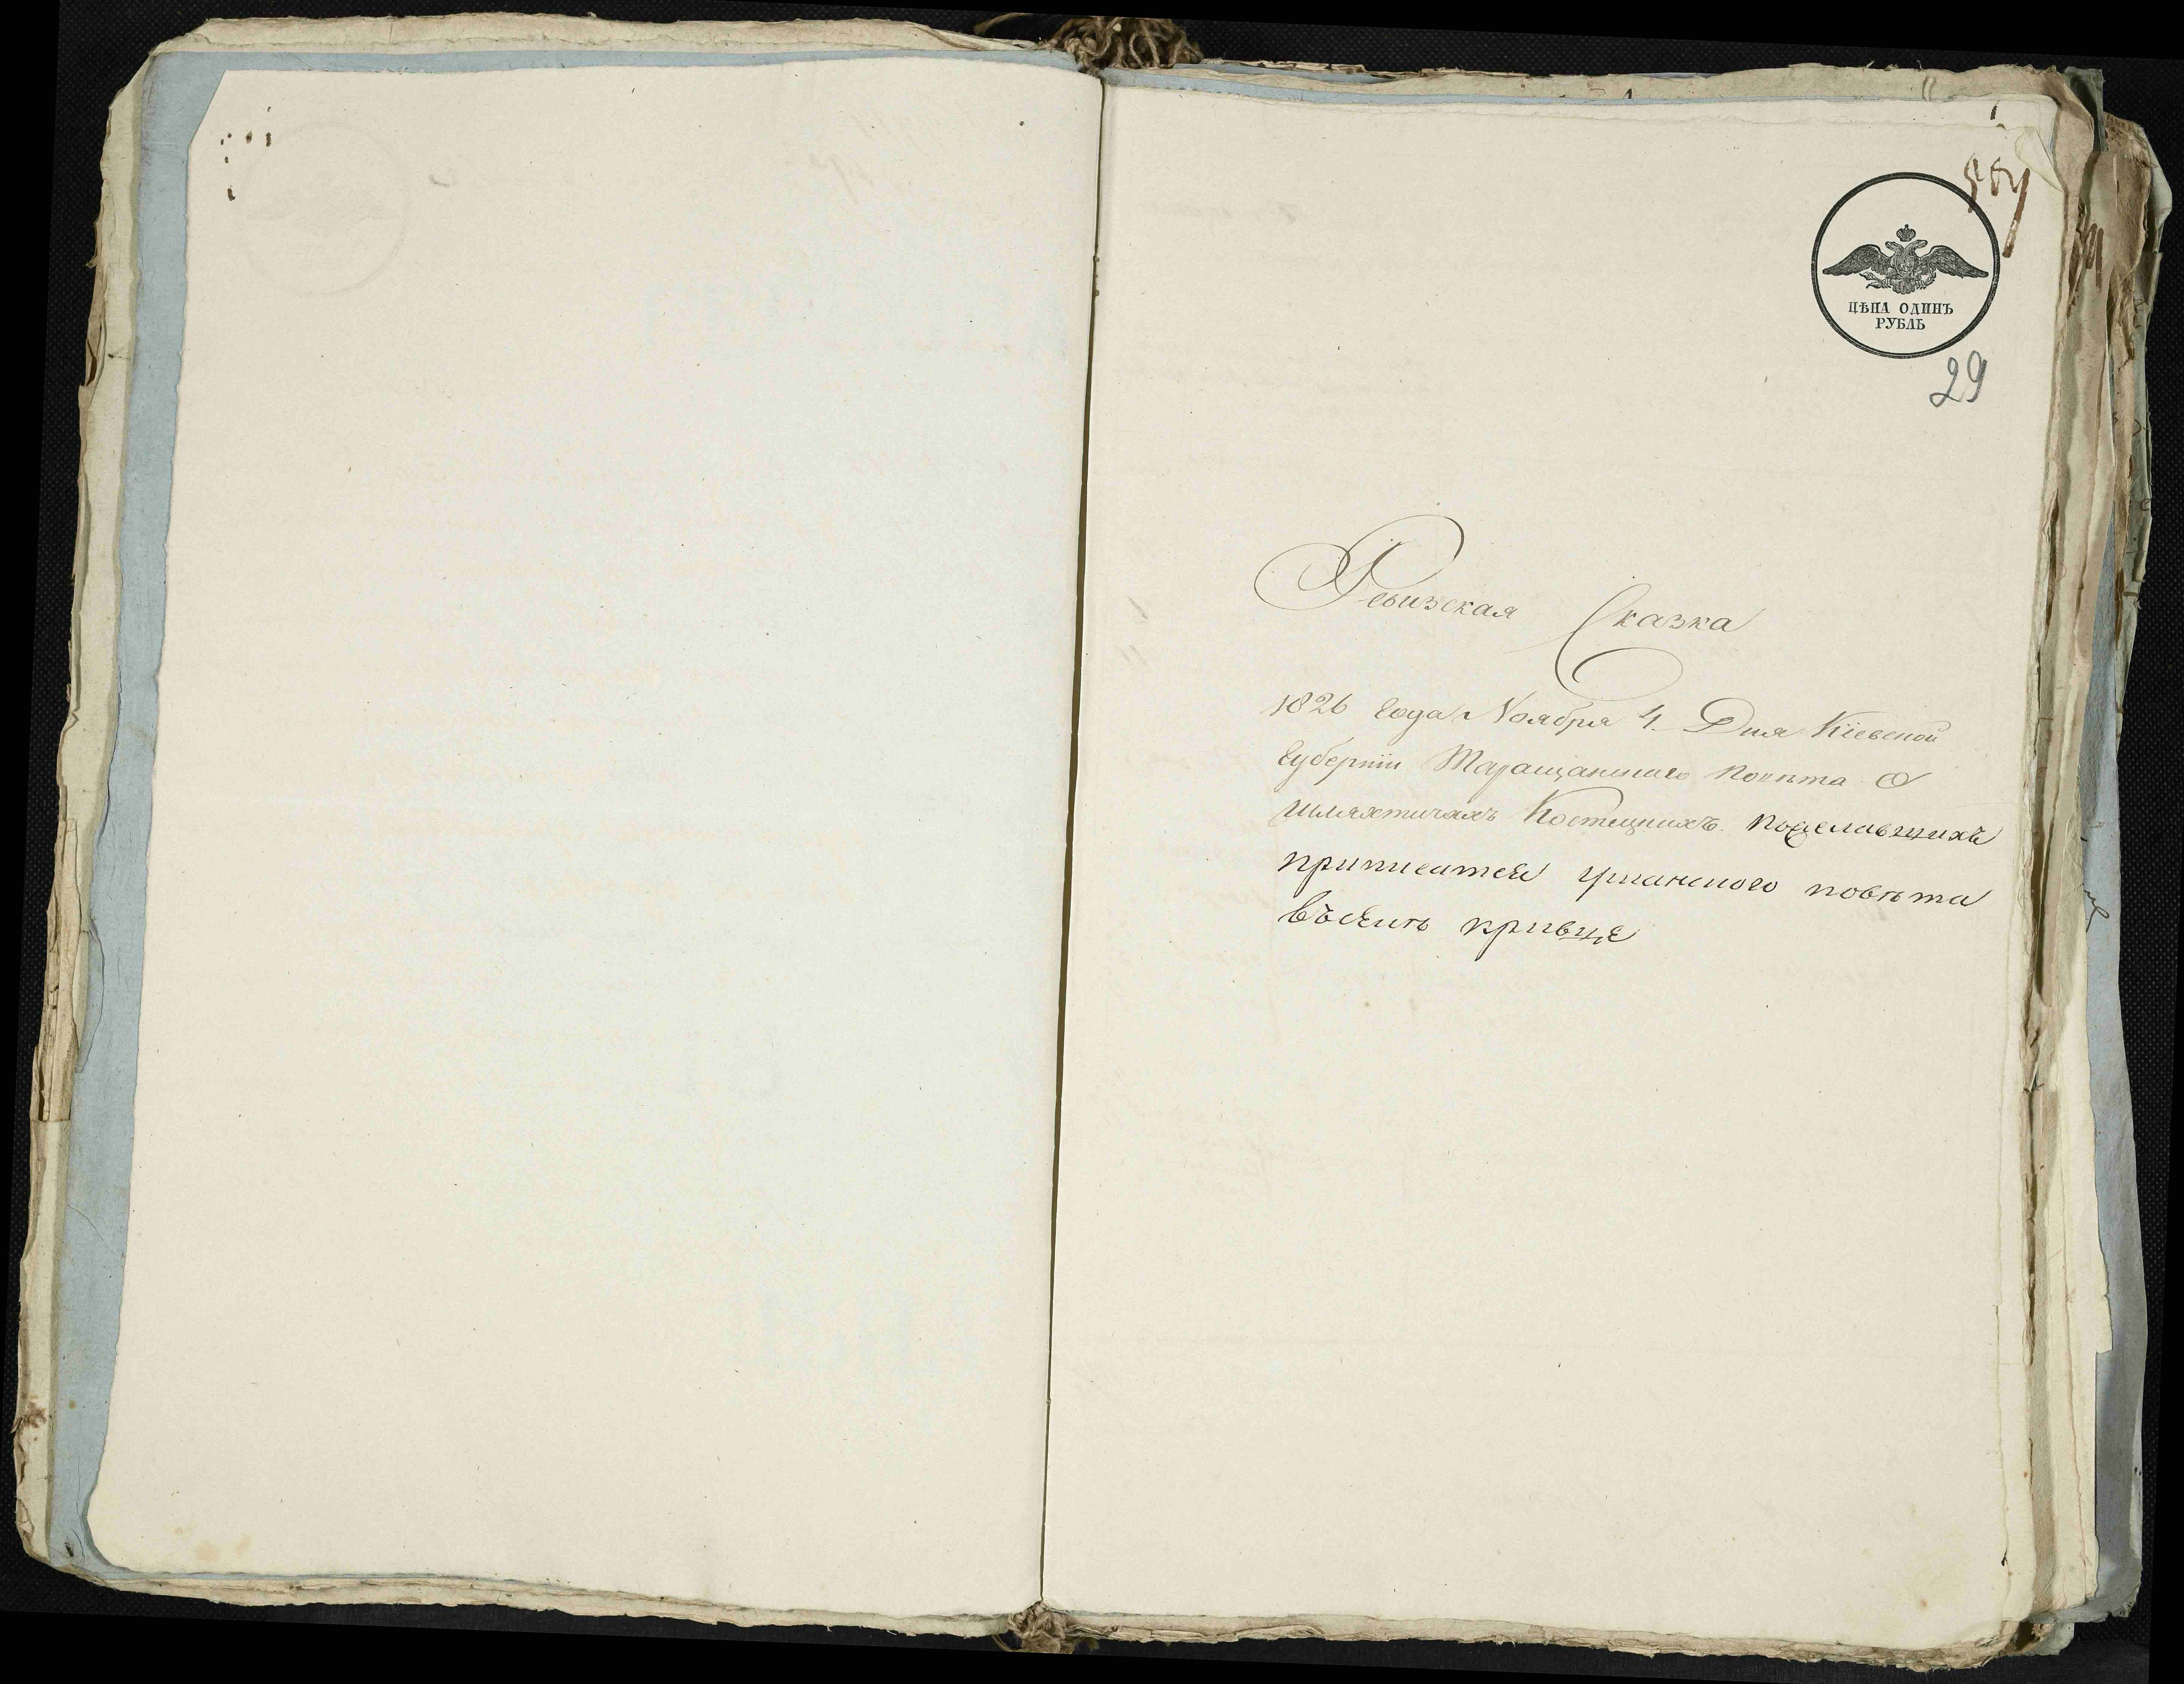 ЦѢНА ОДИНЪ
РУБЛЬ
29
Ревизская Сказка
1826 года Ноября 4. Дня Кіевской
Губерніи Таращанскаго повѣта О
шляхтичахъ Костецкихъ пожелавщихъ
приписатся уманского повѣта
въсели кривце